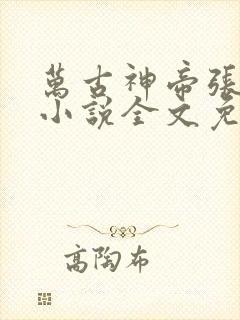 萬古神帝張
小說全文免
高陶布